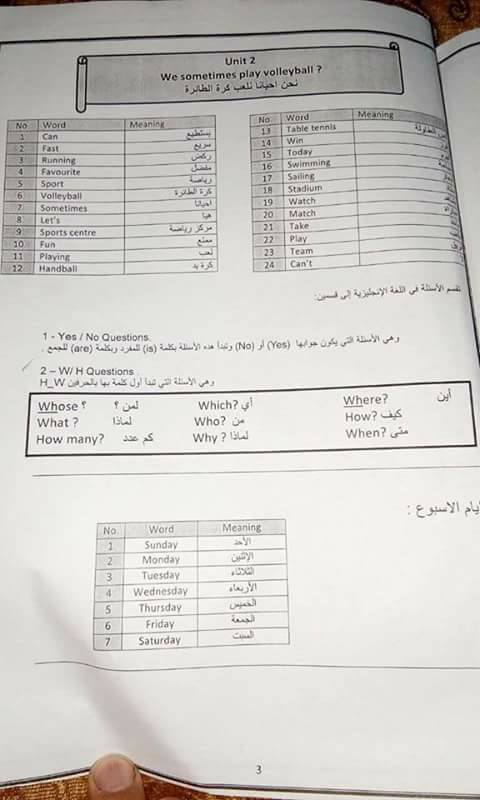 Unit 2
We sometimes play volleyball ?
نحن احيانا نلعب كرة الطائرة
No Word Meaning
1 Can يستطيع
2 Fast سريع
3 Running ركض
4 Favourite مفضل
5 Sport رياضة
6 Volleyball كرة الطائرة
7 Sometimes احيانا
8 Let's هيا
9 Sports centre مركز رياضة
10 Fun ممتع
11 Playing لعب
12 Handball كرة يد
No Word Meaning
13 Table tennis الطاولة
14 Win
15 Today
16 Swimming
17 Sailing
18 Stadium
19 Watch
20 Match
21 Take
22 Play
23 Team
24 Can't
تقسم الأسئلة في اللغة الإنجليزية إلى قسمين:
1 - Yes / No Questions.
وهي الأسئلة التي يكون جوابها (Yes) أو (No) وتبدأ هذه الأسئلة بكلمة (is) للمفرد وبكلمة (are) للجمع .
2 – W/ H Questions
وهي الأسئلة التي تبدأ أول كلمة بها بالحرفين H_W
Whose ? لمن ؟ Which? أي Where? أين
What ? لماذا Who? من How? كيف
How many? كم عدد Why ? لماذا When? متى
ايام الاسبوع :
No Word Meaning
1 Sunday الأحد
2 Monday الإثنين
3 Tuesday الثلاثاء
4 Wednesday الأربعاء
5 Thursday الخميس
6 Friday الجمعة
7 Saturday السبت
3